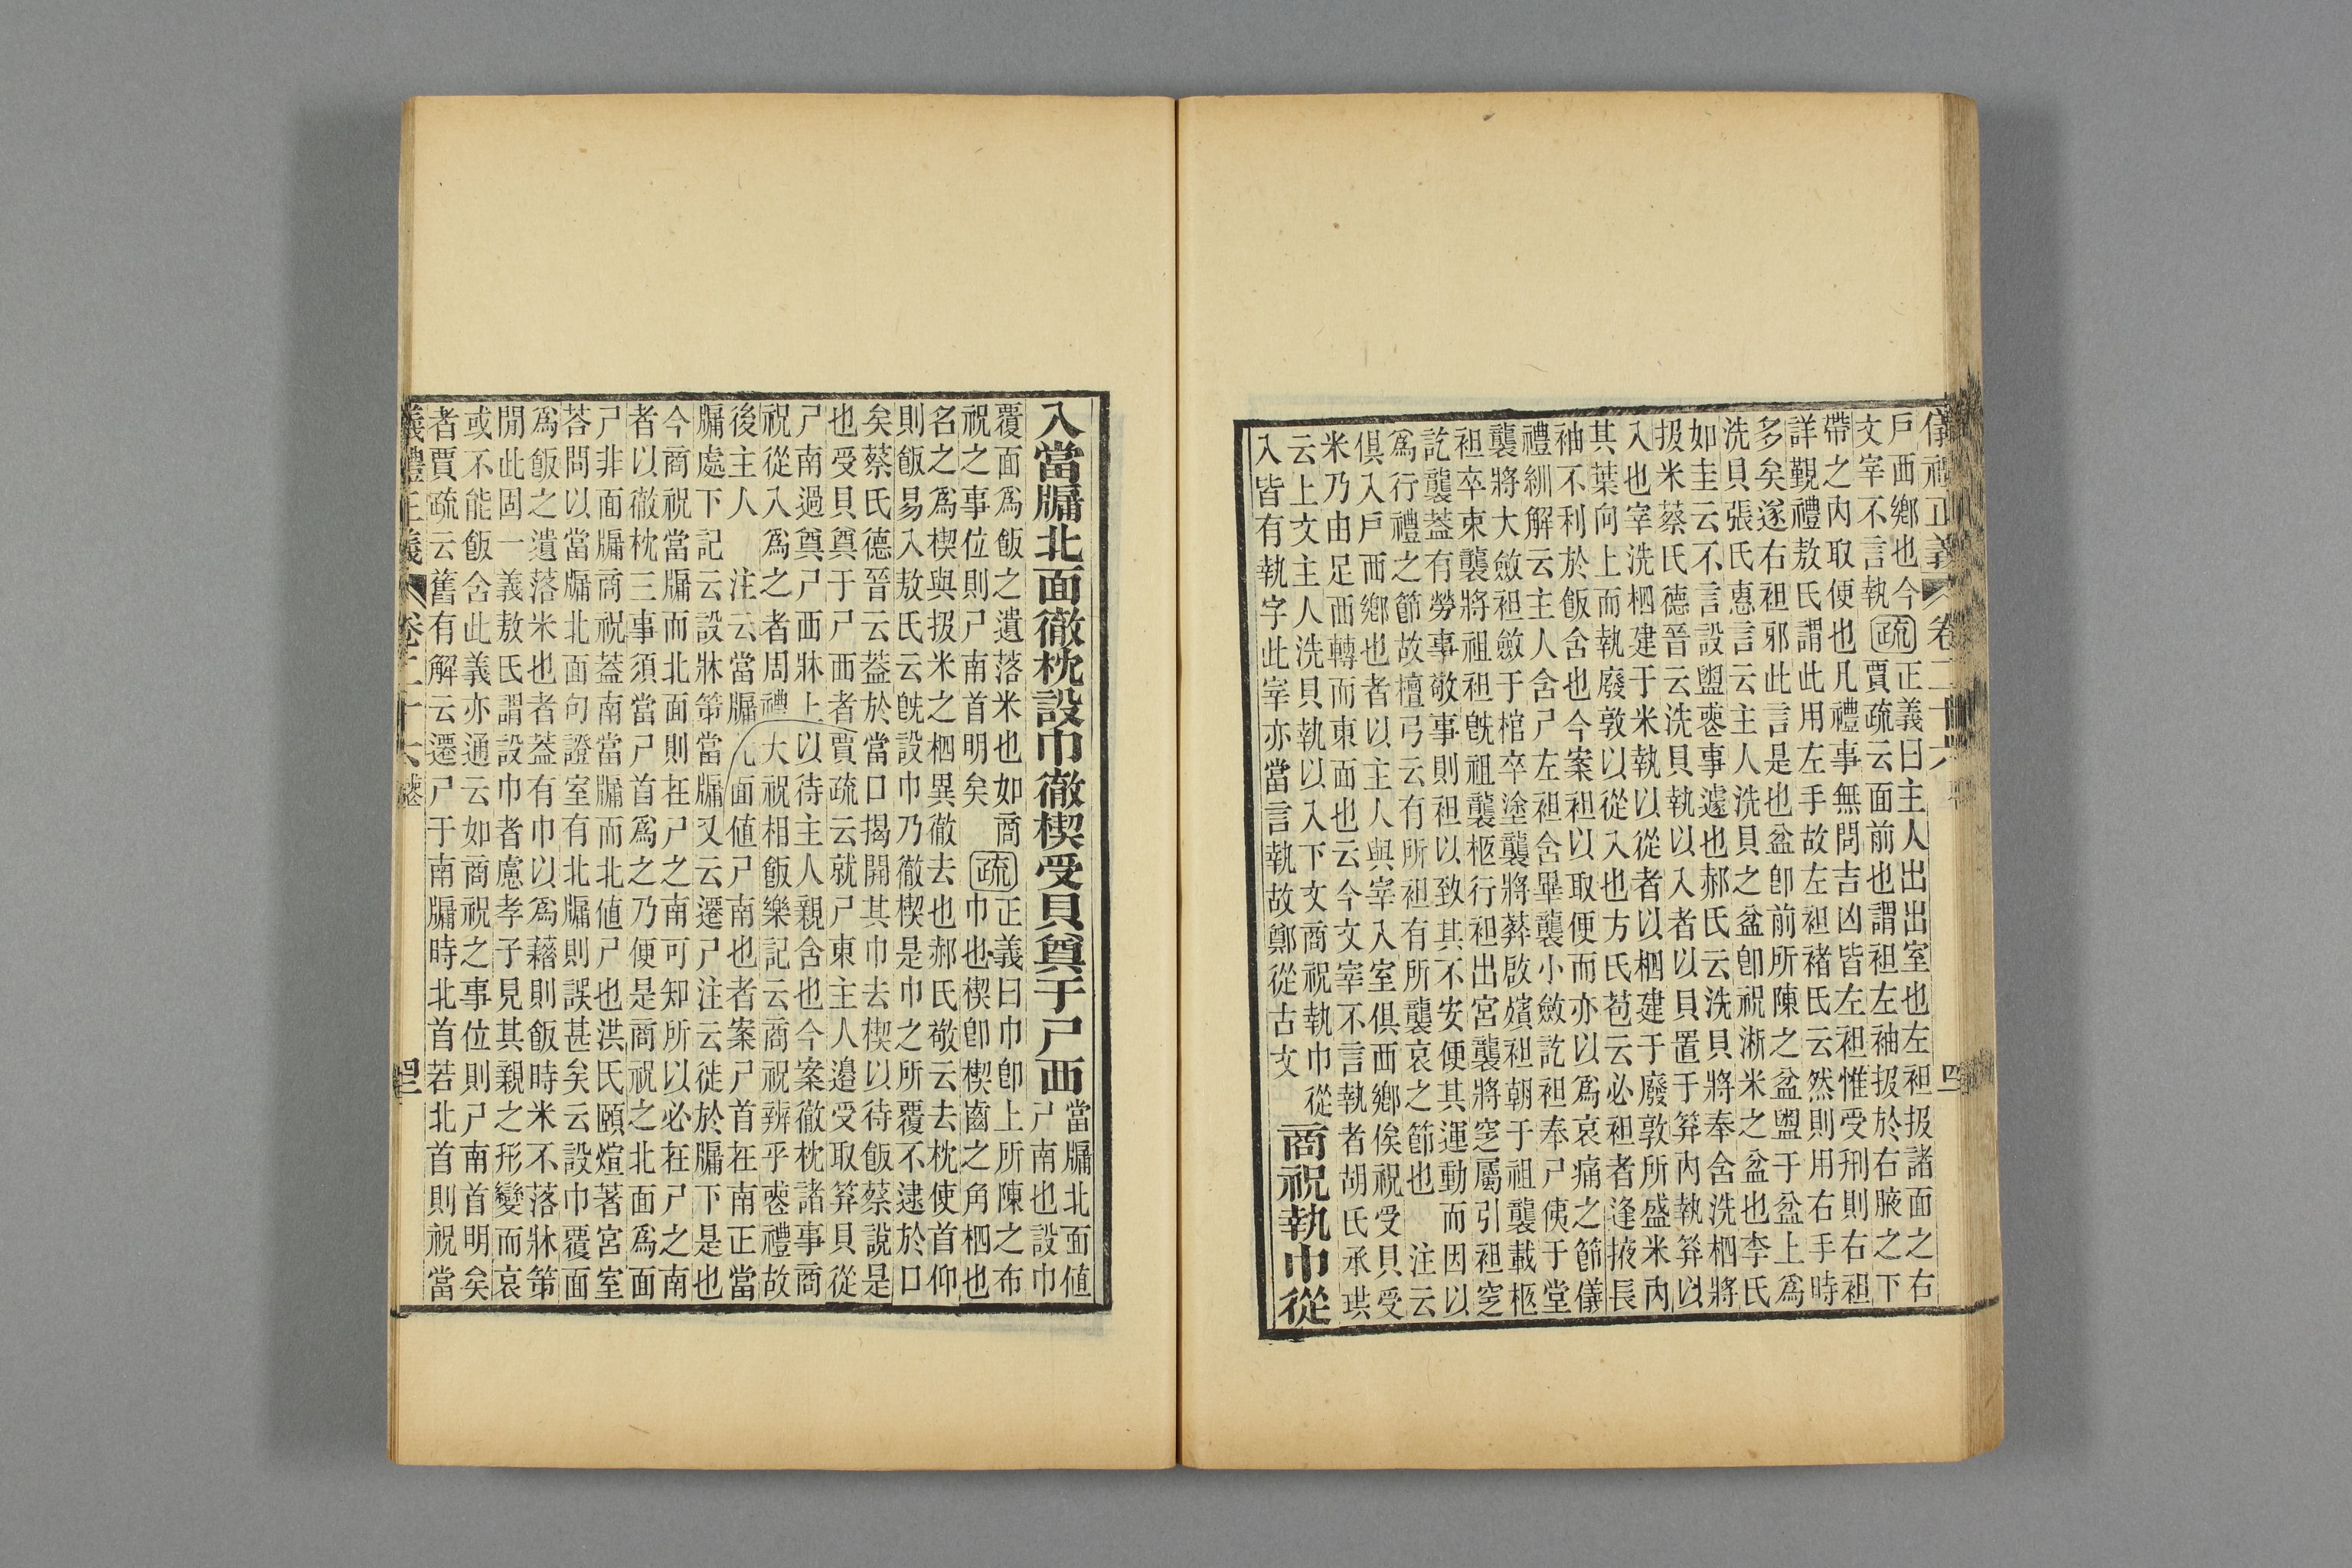 儀禮正義 卷二十六 四
戶西鄉也今
文宰不言執
疏
正義曰主人出出室也左袒扱諸面之右
賈疏云面前也謂袒左袖扱於右腋之下
帶之內取便也凡禮事無問吉凶皆左袒惟受刑則右袒
詳覲禮敖氏謂此用左手故左袒褚氏云然則用右手時
多矣遂右袒邪此言是也盆卽前所陳之盆盥于盆上爲
洗貝張氏惪言云主人洗貝之盆卽祝淅米之盆也李氏
如圭云不言設盥喪事遽也郝氏云洗貝將奉含洗柶將
扱米蔡氏德晉云洗貝執以入者以貝置于筓內執筓以
入也宰洗柶建于米執以從者以柶建于廢敦所盛米內
其葉向上而執廢敦以從入也方氏苞云必袒者逢掖長
袖不利於飯含也今案袒以取便而亦以爲哀痛之節儀
禮紃解云主人含尸左袒含畢襲小斂訖袒奉尸侇于堂
襲將大斂袒斂于棺卒塗襲將葬啟殯袒朝于祖襲載柩
袒卒束襲將祖袒旣祖襲柩行袒出宮襲將窆屬引袒窆
訖襲蓋有勞事敬事則袒以致其不安便其運動而因以
爲行禮之節故檀弓云有所袒有所襲哀之節也 注云
俱入戶西鄉也者以主人與宰入室俱西鄉俟祝受貝受
米乃由足西轉而東面也云今文宰不言執者胡氏承珙
云上文主人洗貝執以入下文商祝執巾從
入皆有執字此宰亦當言執故鄭從古文
商祝執巾從
入當牖北面徹枕設巾徹楔受貝奠于尸西
當牖北面値
尸南也設巾
覆面爲飯之遺落米也如商
祝之事位則尸南首明矣
疏
正義曰巾卽上所陳之布
巾也楔卽楔齒之角柶也
名之爲楔與扱米之柶異徹去也郝氏敬云去枕使首仰
則飯易入敖氏云旣設巾乃徹楔是巾之所覆不逮於口
矣蔡氏德晉云蓋於當口揭開其巾去楔以待飯蔡說是
也受貝奠于尸西者賈疏云就尸東主人邊受取筓貝從
尸南過奠尸西牀上以待主人親含也今案徹枕諸事商
祝從入爲之者周禮大祝相飯樂記云商祝辨乎喪禮故
後主人 注云當牖北面値尸南也者案尸首在南正當
牖處下記云設牀笫當牖又云遷尸注云徙於牖下是也
今商祝當牖而北面則在尸之南可知所以必在尸之南
者以徹枕三事須當尸首爲之乃便是商祝之北面爲面
尸非面牖商祝蓋南當牖而北値尸也洪氏頤煊著宮室
荅問以當牖北面句證室有北牖則誤甚矣云設巾覆面
爲飯之遺落米也者蓋有巾以爲藉則飯時米不落牀笫
閒此固一義敖氏謂設巾者慮孝子見其親之形變而哀
或不能飯含此義亦通云如商祝之事位則尸南首明矣
者賈疏云舊有解云遷尸于南牖時北首若北首則祝當
儀禮正義 卷二十六